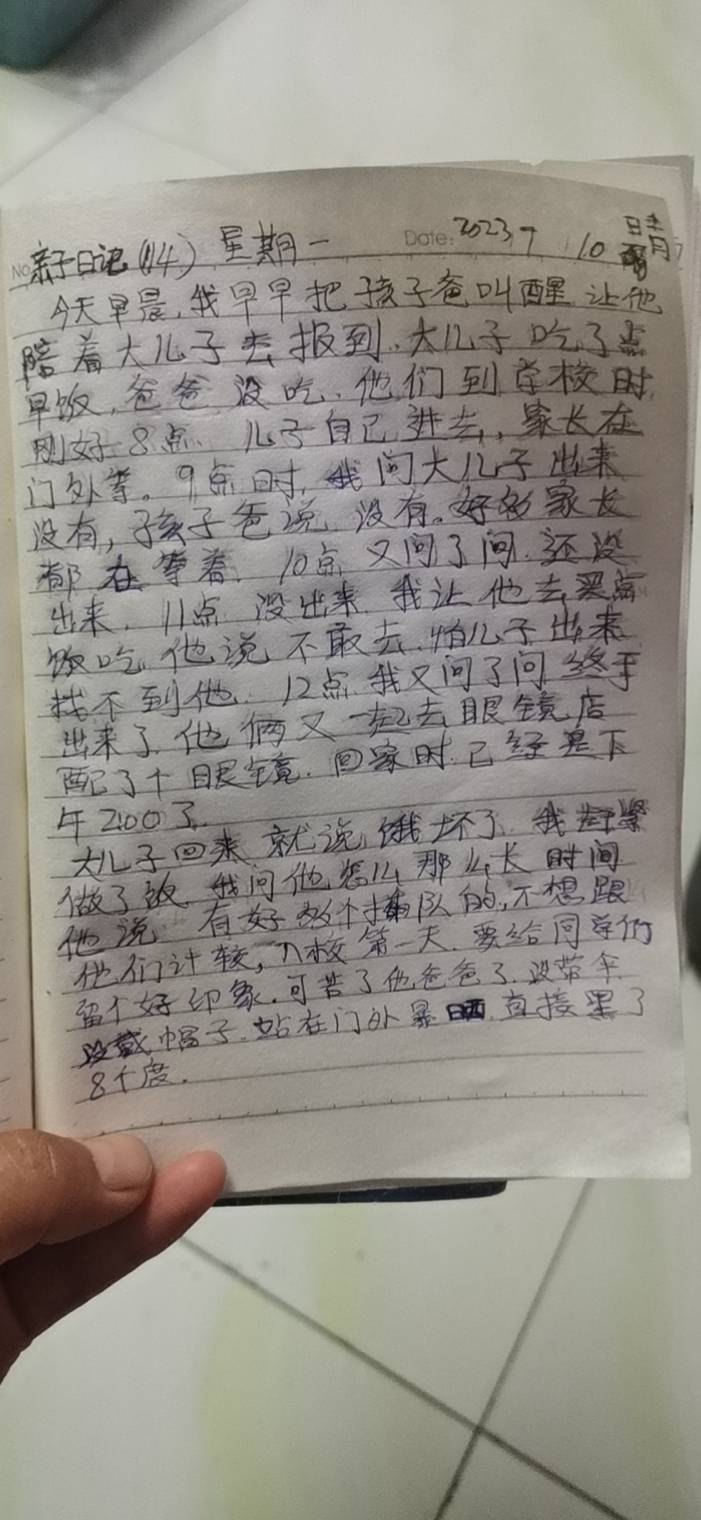 No 亲子日记(114) 星期一 Date: 2023 7 10 晴
今天早晨,我早早把孩子爸叫醒 让他
陪着大儿子去报到.大儿子吃了点
早饭,爸爸没吃.他们到学校时
刚好8点 儿子自己进去,家长在
门外等。9点时,我问大儿子出来
没有,孩子爸说 没有。好多家长
都在等着. 10点 又问了问.还没
出来. 11点 没出来 我让他去买点
饭吃 他说不敢去.怕儿子出来
找不到他. 12点 我又问了问 终于
出来了.他俩又一起去眼镜店
配了个眼镜.回家时.已经是下
午2:00了.
大儿子回来就说饿坏了.我赶紧
做了饭.我问他怎么那么长时间
他说 有好多个插队的,不想跟
他们计较,入校第一天.要给同学们
留个好印象.可苦了他爸爸了.没带伞
没戴帽子.站在门外暴晒.直接黑了
8个度.